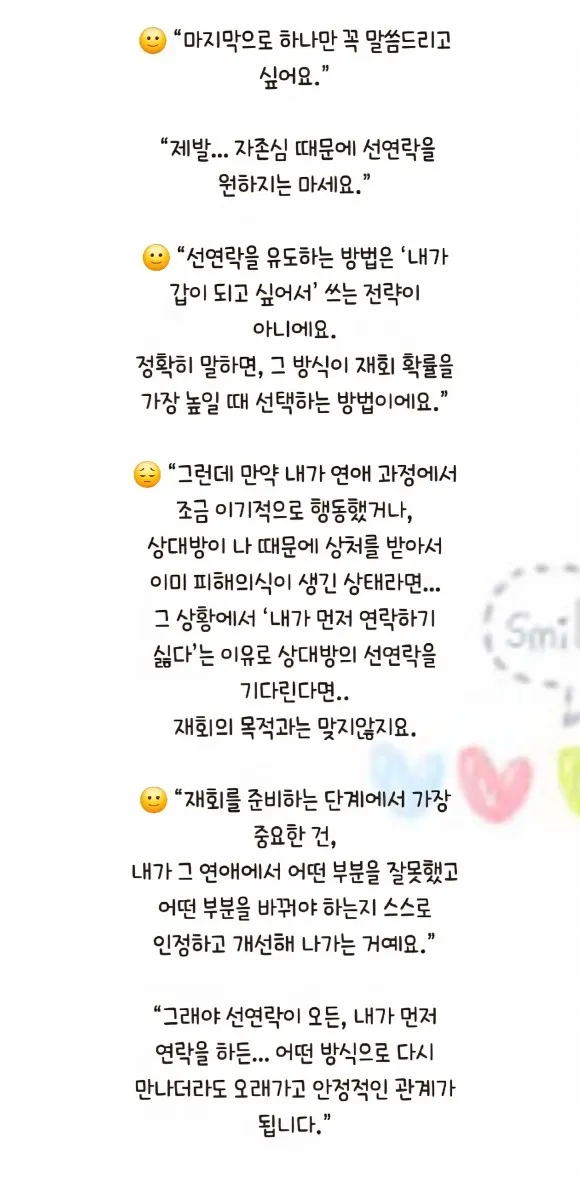 🙂 “마지막으로 하나만 꼭 말씀드리고
싶어요.”
“제발... 자존심 때문에 선연락을
원하지는 마세요.”
🙂 “선연락을 유도하는 방법은 ‘내가
갑이 되고 싶어서’ 쓰는 전략이
아니에요.
정확히 말하면, 그 방식이 재회 확률을
가장 높일 때 선택하는 방법이에요.”
😔 “그런데 만약 내가 연애 과정에서
조금 이기적으로 행동했거나,
상대방이 나 때문에 상처를 받아서
이미 피해의식이 생긴 상태라면...
그 상황에서 ‘내가 먼저 연락하기
싫다’는 이유로 상대방의 선연락을
기다린다면..
재회의 목적과는 맞지않지요.
🙂 “재회를 준비하는 단계에서 가장
중요한 건,
내가 그 연애에서 어떤 부분을 잘못했고
어떤 부분을 바꿔야 하는지 스스로
인정하고 개선해 나가는 거예요.”
“그래야 선연락이 오든, 내가 먼저
연락을 하든... 어떤 방식으로 다시
만나더라도 오래가고 안정적인 관계가
됩니다.”